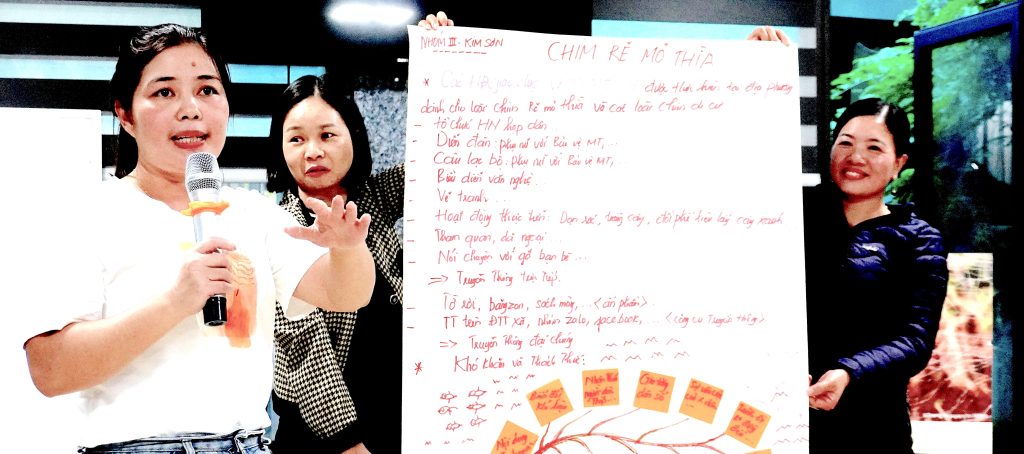 NHÓM III - KIM SƠN
CHIM RẼ MỎ THÌA
* Các được thực hiện tại địa phương
dành cho loài chim Rẽ mỏ thìa và các loài chim di cư
- Tổ chức HN hấp dẫn
- Diễn đàn: phụ nữ với Bảo vệ MT,...
- Câu lạc bộ: phụ nữ với Bảo vệ MT,...
- Biểu diễn văn nghệ...
- Vẽ tranh...
- Hoạt động thực tiễn: Dọn rác, trồng cây,
- Tham quan, dã ngoại...
- Nói chuyện với bạn bè...
=> Truyền thông trực tiếp.
- Tờ rơi, băngzon, sách mỏng,... <ấn phẩm>.
- TT trên ĐTT xã, nhóm zalo, facebook,... <công cụ truyền thông>
=> Truyền thông đại chúng
* Khó khăn và Thách thức:
Nội dung